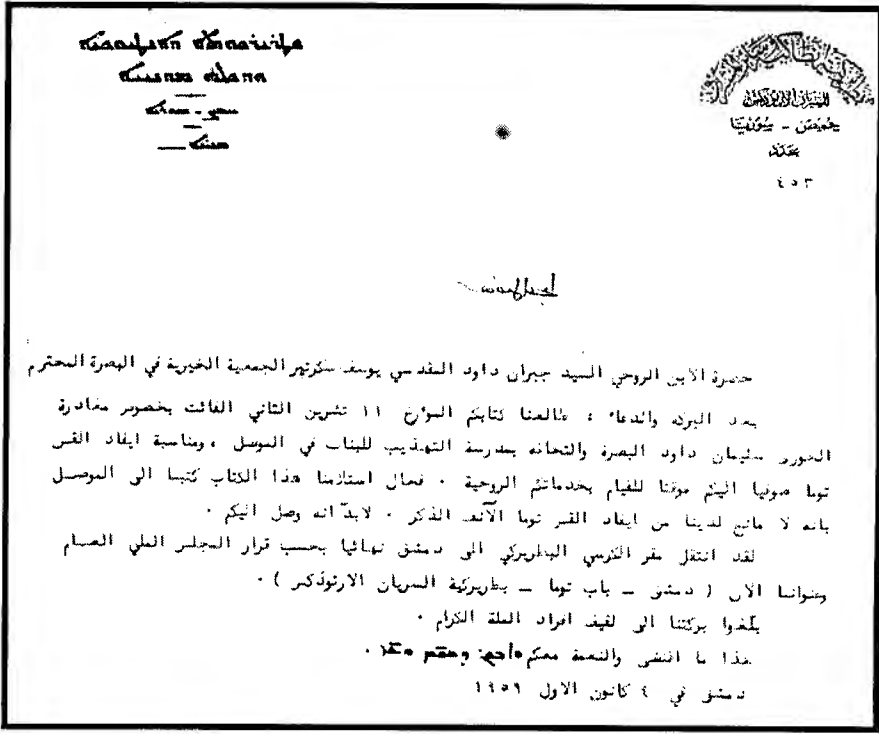 ܘܕܟܠܗ ܡܕܢܚܐ
بطريركية انطاكية وسائر المشرق
للسريان الارثوذكس
حمص - سوريا
بعدد
٤٥٣
حضرة الابن الروحي السيد جبران داود المقدسي يوسف سكرتير الجمعية الخيرية في البصرة المحترم
بعد البركة والدعاء ، طالعنا كتابكم المؤرخ ١١ تشرين الثاني الفائت بخصوص مغادرة
الخوري سليمان داود البصرة والتحاقه بمدرسة التهذيب للبنات في الموصل ، ومناسبة ايفاد القس
توما صوفيا اليكم موقتا للقيام بخدماتكم الروحية . فحال استلامنا هذا الكتاب كتبنا الى الموصل
بانه لا مانع لدينا من ايفاد القس توما الآنف الذكر . لابدّ انه وصل اليكم .
لقد انتقل مقر الكرسي البطريركي الى دمشق نهائيا بحسب قرار المجلس الملي العام
وعنواننا الآن ( دمشق - باب توما - بطريركية السريان الارثوذكس ) .
بلّغوا بركتنا الى لفيف افراد الملة الكرام .
هذا ما اقتضى والنعمة معكم .
دمشق في ٤ كانون الاول ١٩٥٩